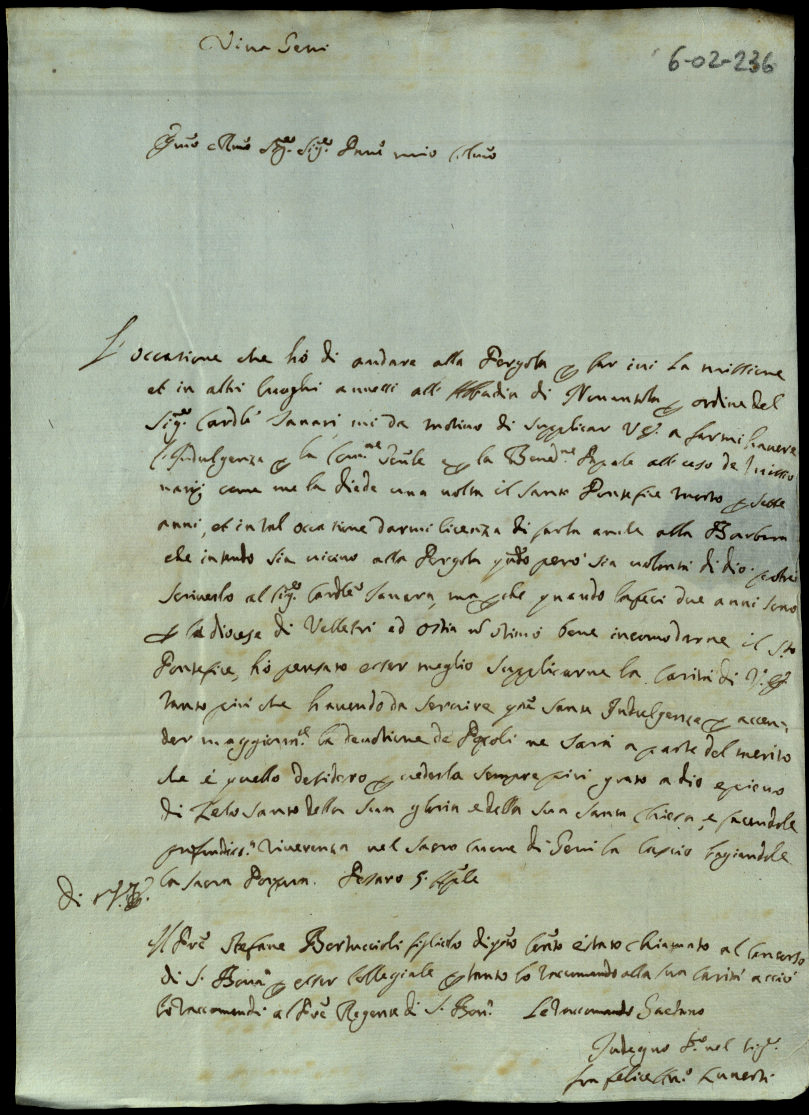 Viva Gesù
6-02-236
Sig.re Sig.re Prone mio
L'occasione che hò di andare alla Pergola p far ivi la missione
et in altri luoghi annessi all' Abbadia di Nonantola p ordine del
Sig.e Cardle Sanari mi dà motivo di supplicar V. a farmi havere
l'Indulgenza p la Com.ne e p la Bened.ne Papale all' uso de missio
narij come me la diede una volta il Santo Pontefice morto p sette
anni, et in tal occasione darmi licenza di farla anche alla Barbara
che intendo sia vicino alla Pergola però sia volontà di dio. potrei
scriverlo al Sig.e Cardle Sanara, ma quando la feci due anni sono
p la diocese di Velletri ed Ostia stimò bene incomodarne il S.to
Pontefice, hò pensato esser meglio supplicarne la carità di V.
tanto più che havendo da servire Santa Indulgenza p accen-
der maggiorm.te la devotione de Popoli ne sarà a parte del merito
che è quello desidero p vederla sempre più grato a dio e pieno
di Zelo Santo della Sua gloria e della Sua Santa Chiesa, e facendole
profondiss.a riverenza nel Sacro Cuore di Gesù la lascio baciandole
la Sacra Porpora. Pesaro 5 Aple
di V.
Il Pre Stefano Bertuccioli figliolo di è stato chiamato al Concorso
di S. Bona p esser Collegiale p tanto lo raccomando alla Sua Carità acciò
lo raccomandi al Pre Regente di S. Bon.a Le raccomando Gaetano
Indegno nel Sig.e
fra felice